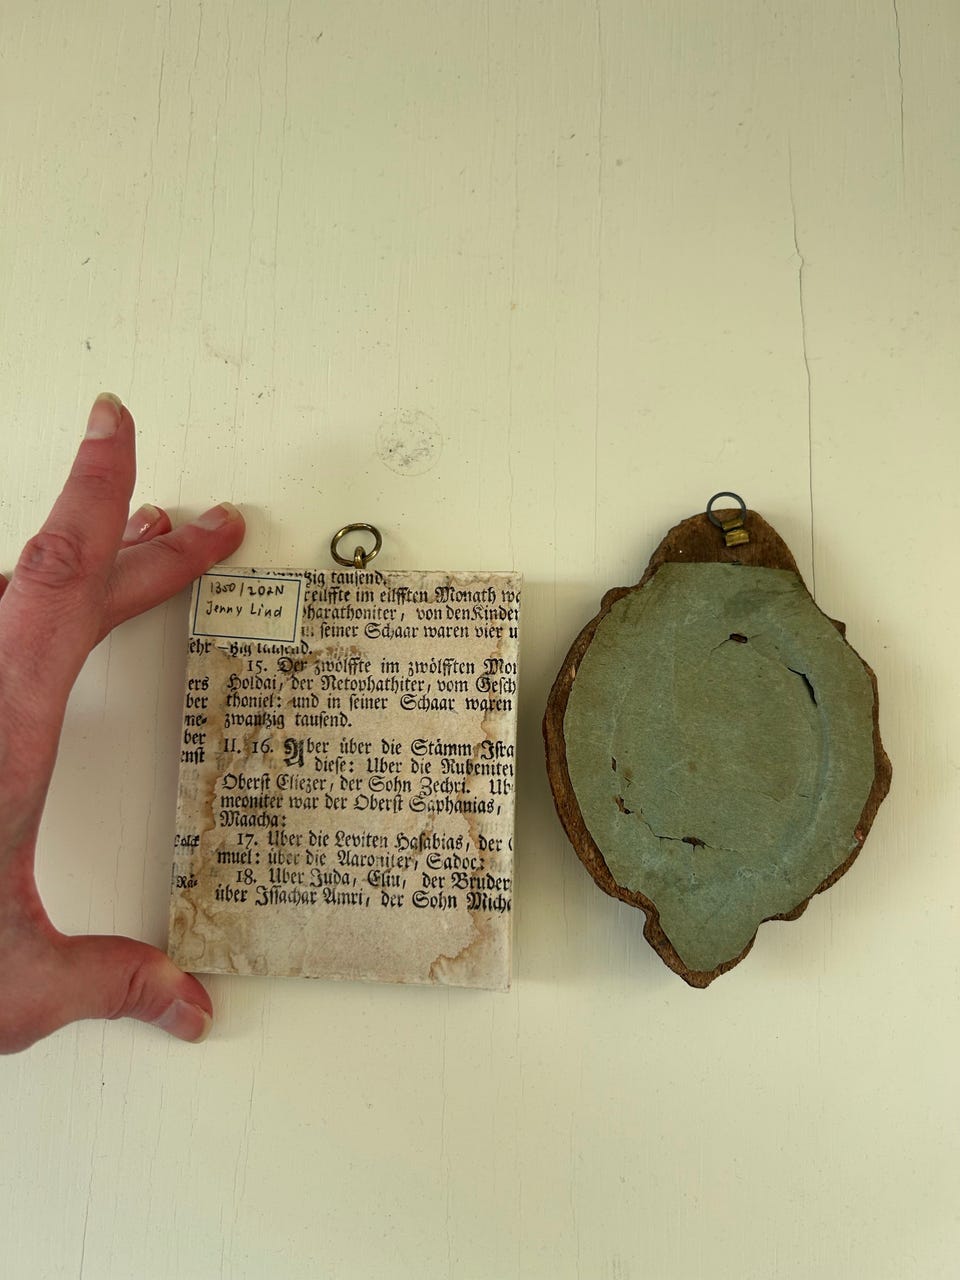 1350/202N
Jenny Lind
tzig tausend.
eilffte im eilfften Monath
harathoniter, von den Kinder
seiner Schaar waren vier u
ehr
15. Der zwölffte im zwölfften Mon
ers Holdai, der Netophathiter, vom Gesch
ber thoniel: und in seiner Schaar waren
ne- zwantzig tausend.
ber
enst II. 16. Aber über die Stämm Isra
diese: Uber die Rubeniter
Oberst Eliezer, der Sohn Zechri. Ub
meoniter war der Oberst Saphanias,
Maacha:
17. Uber die Leviten Hasabias, der
muel: über die Aaroniter, Sadoc:
Rä- 18. Uber Juda, Eliu, der Bruder
über Issachar Amri, der Sohn Mich